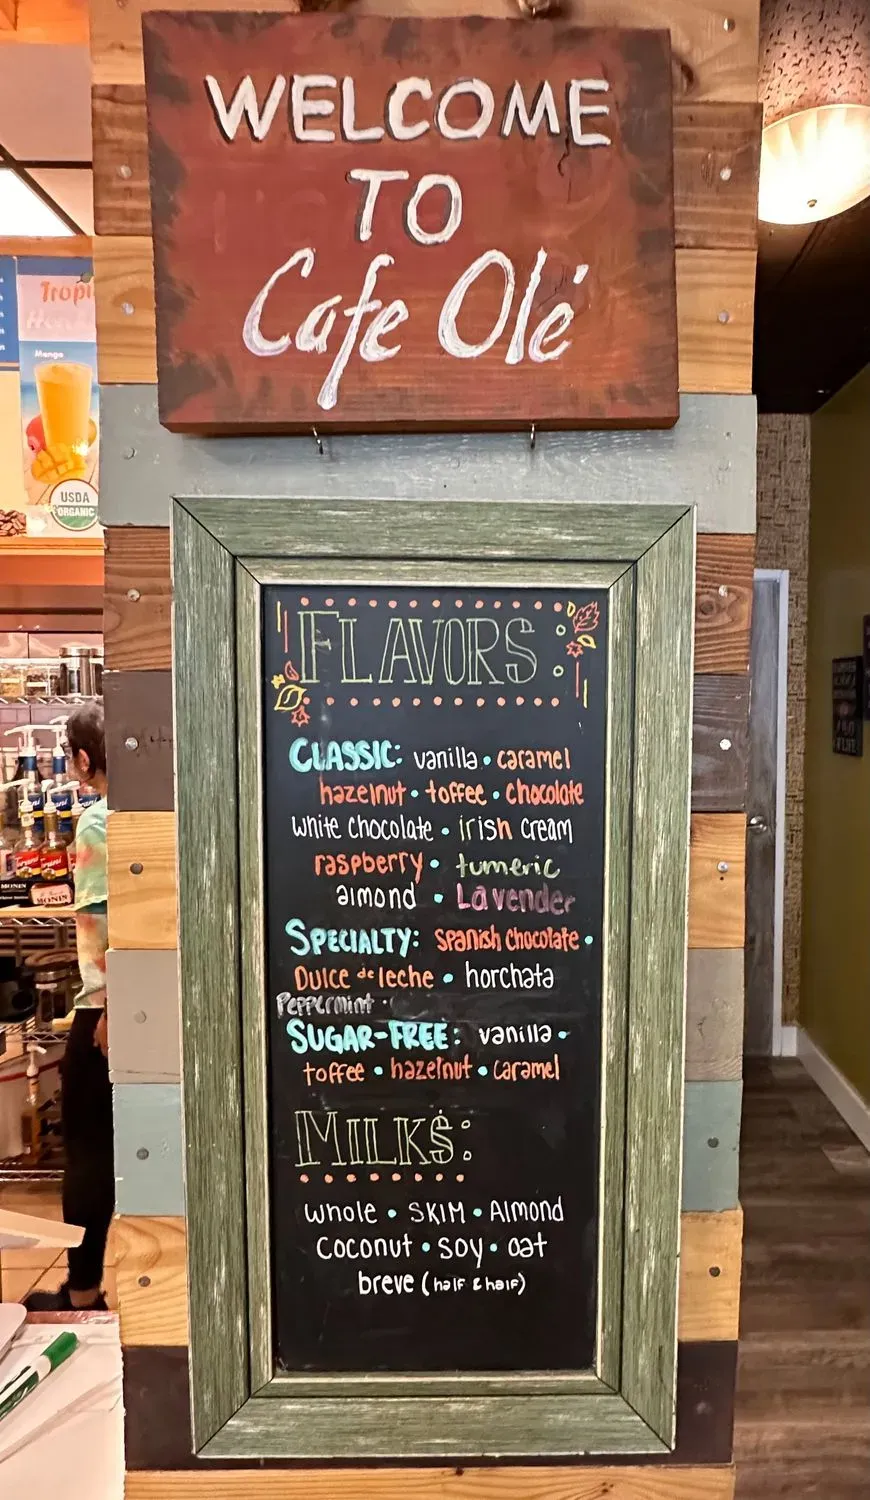 WELCOME
TO
Cafe Olé
Mango
USDA
ORGANIC
FLAVORS:
CLASSIC: vanilla • caramel
hazelnut • toffee • chocolate
white chocolate • irish cream
raspberry • tumeric
almond • Lavender
SPECIALTY: spanish chocolate •
Dulce de leche • horchata
Peppermint •
SUGAR-FREE: vanilla •
toffee • hazelnut • caramel
MILKS:
whole • SKIM • Almond
Coconut • soy • oat
breve (half & half)